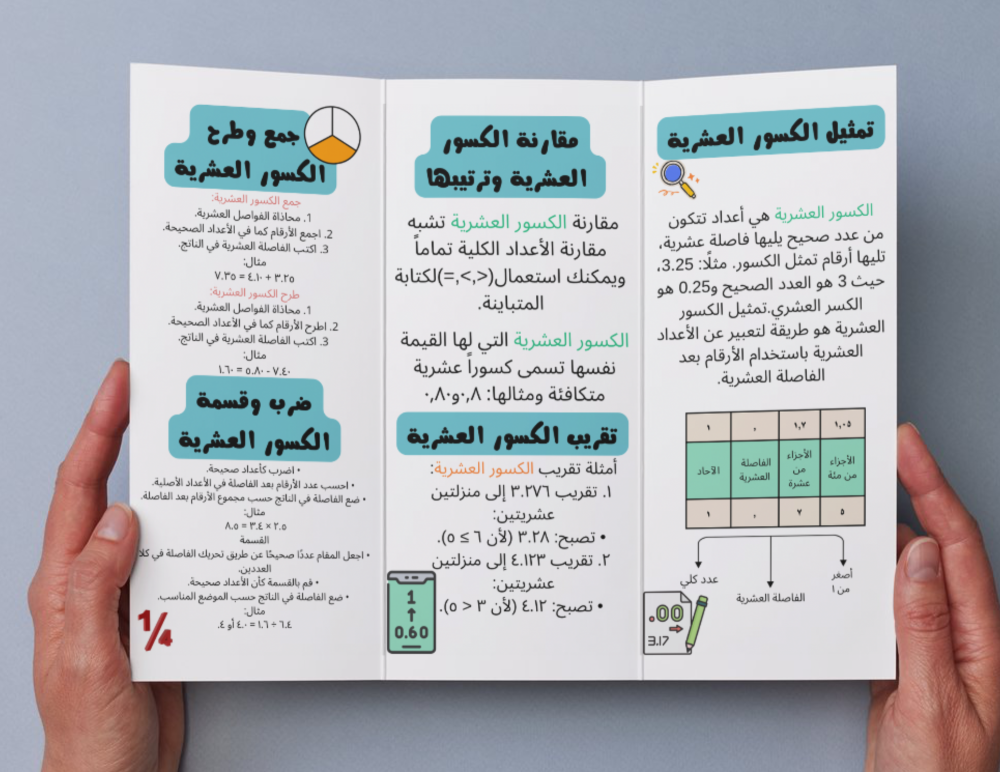 تمثيل الكسور العشرية
الكسور العشرية هي أعداد تتكون
من عدد صحيح يليها فاصلة عشرية،
تليها أرقام تمثل الكسور. مثلًا: 3.25،
حيث 3 هو العدد الصحيح و0.25 هو
الكسر العشري.تمثيل الكسور
العشرية هو طريقة لتعبير عن الأعداد
العشرية باستخدام الأرقام بعد
الفاصلة العشرية.
١,٠٥ ١,٢ , ١
الأجزاء من مئة
الأجزاء من عشرة
الفاصلة العشرية
الآحاد
٥ ٢ , ١
أصغر من ١
الفاصلة العشرية
عدد كلي
.00
3.17
مقارنة الكسور
العشرية وترتيبها
مقارنة الكسور العشرية تشبه
مقارنة الأعداد الكلية تماماً
ويمكنك استعمال(<,>,=)لكتابة
المتباينة.
الكسور العشرية التي لها القيمة
نفسها تسمى كسوراً عشرية
متكافئة ومثالها: ٠,٨و٠,٨٠
تقريب الكسور العشرية
أمثلة تقريب الكسور العشرية:
١. تقريب ٣.٢٧٦ إلى منزلتين
عشريتين:
• تصبح: ٣.٢٨ (لأن ٦ ≥ ٥).
٢. تقريب ٤.١٢٣ إلى منزلتين
عشريتين:
• تصبح: ٤.١٢ (لأن ٣ < ٥).
1
0.60
جمع وطرح
الكسور العشرية
جمع الكسور العشرية:
1. محاذاة الفواصل العشرية.
2. اجمع الأرقام كما في الأعداد الصحيحة.
3. اكتب الفاصلة العشرية في الناتج.
مثال:
٣.٢٥ + ٤.١٠ = ٧.٣٥
طرح الكسور العشرية:
1. محاذاة الفواصل العشرية.
2. اطرح الأرقام كما في الأعداد الصحيحة.
3. اكتب الفاصلة العشرية في الناتج.
مثال:
٧.٤٠ - ٥.٨٠ = ١.٦٠
ضرب وقسمة
الكسور العشرية
• اضرب كأعداد صحيحة.
• احسب عدد الأرقام بعد الفاصلة في الأعداد الأصلية.
• ضع الفاصلة في الناتج حسب مجموع الأرقام بعد الفاصلة.
مثال:
٢.٥ × ٣.٤ = ٨.٥
القسمة
• اجعل المقام عددًا صحيحًا عن طريق تحريك الفاصلة في كلا
العددين.
• قم بالقسمة كأن الأعداد صحيحة.
• ضع الفاصلة في الناتج حسب الموضع المناسب.
مثال:
٦.٤ ÷ ١.٦ = ٤.٠ أو ٤.
1/4